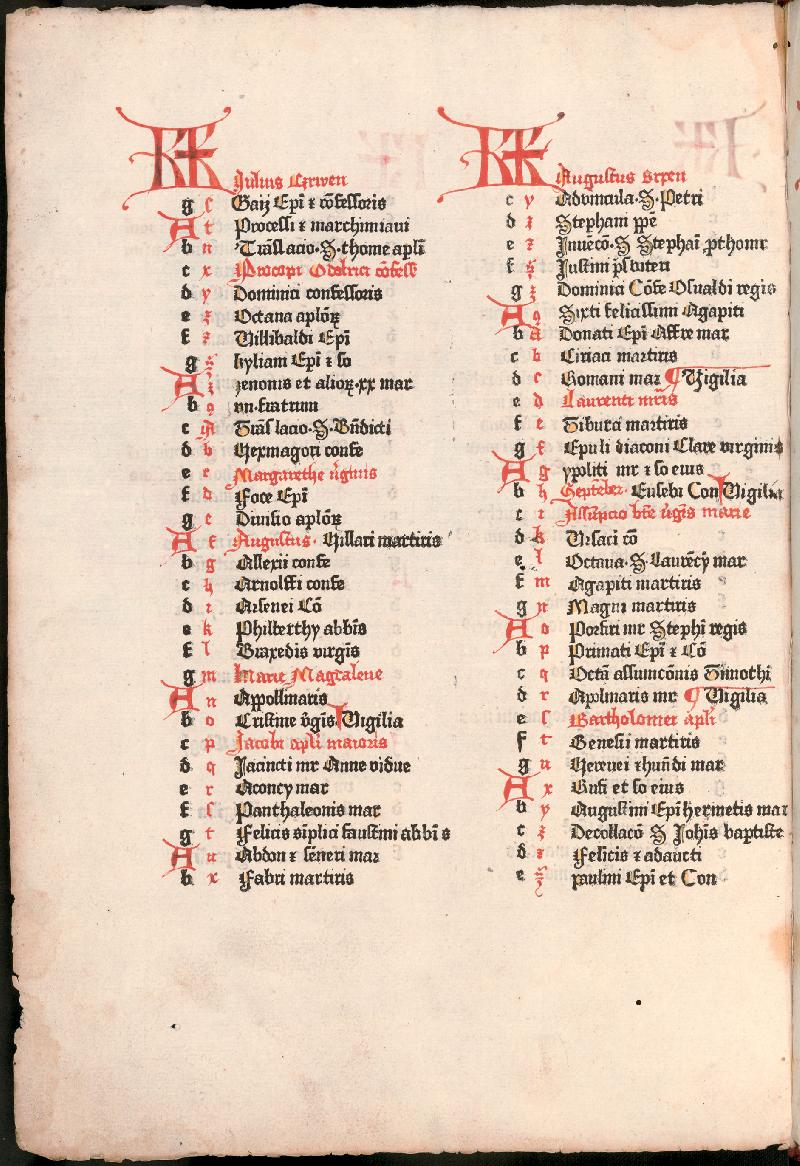 KK Julius Czrwen
g s Gaij Epī ⁊ cōfessoris
A t Processi ⁊ marchimiani
b u Trāslacio·S·thome aplī
c x Procopi Odelrici cōfess
d y Dominici confessoris
e z Octaua aplōꝝ
f Villibaldi Epī
g kyliani Epī ⁊ so
A zenonis et alioꝝ·xx mar
b 9 vii·fratrum
c A Trāslacio·S·Bn̄dicti
d b Hermagori confe
e c Margarethe v̄ginis
f d Foce Epī
g e Diuisio aplōꝝ
A f Augustus· Hillari martiris
b g Allexii confe
c h Arnolffi confe
d i Arsenei Cō
e k Philberthy abbīs
f l Braxedis virgīs
g m Marie Magdalene
A n Appollinaris
b o Cristine v̄gīs Vigilia
c p Jacobi aplī maioris
d q Jacincti mr Anne vidue
e r Aconcy mar
f s Panthaleonis mar
g t Felicis sīplici faustini abbī s
A u Abdon ⁊ senen mar
b x Fabri martiris
KK Augustus Srpen
c y Aduincula·S·Petri
d z Stephani ppē
e Inuēcō·S Stephaī ꝓthomr
f Justini p̄sbiteri
g Dominici Cōfe Osualdi regis
A 9 Sixti felicissimi Agapiti
b A Donati Epī Affre mar
c b Ciriaci martiris
d c Romani mar ¶ Vigilia
e d Laurenti mr̄is
f e Tiburci martiris
g f Epuli diaconi Clare virginis
A g ypoliti mr ⁊ so eius
b h Septēber· Eusebi Con Vigilia
c i Assūpcio btē v̄gīs marie
d k Vrsaci cō
e l Octaua·S·Laurēcy mar
f m Agapiti martiris
g n Magni martiris
A o Porfiri mr Stephī regis
b p Primati Epī ⁊ Cō
c q Octā assumcōnis Timothi
d r Applinaris mr ¶ Vigilia
e s Bartholomei aplī
f t Genesii martiris
g u Herenei ⁊ hun̄di mar
A x Rufi et so eius
b y Augustini Epī hermetis mar
c z Decollacō S Johīs baptiste
d Felicis ⁊ adaucti
e paulini Epī et Con